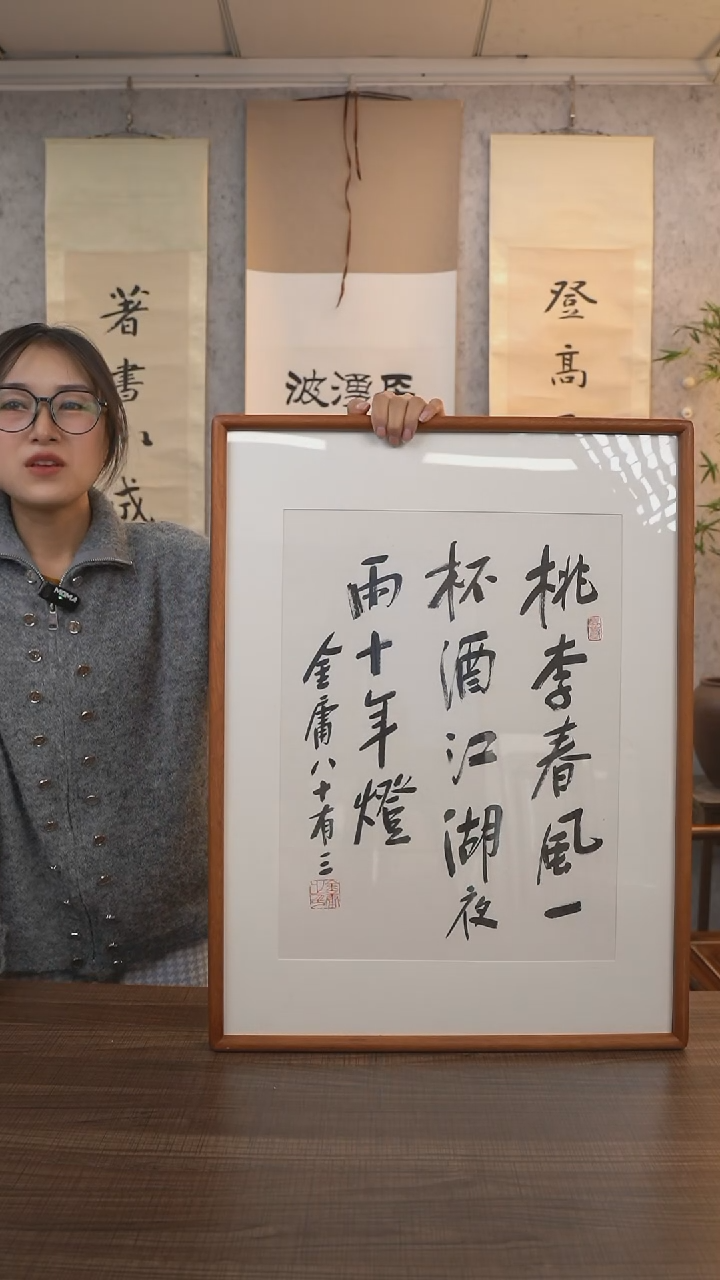 登高
湧
波
著書
成
桃李春風一
杯酒江湖夜
雨十年燈
金庸八十有三